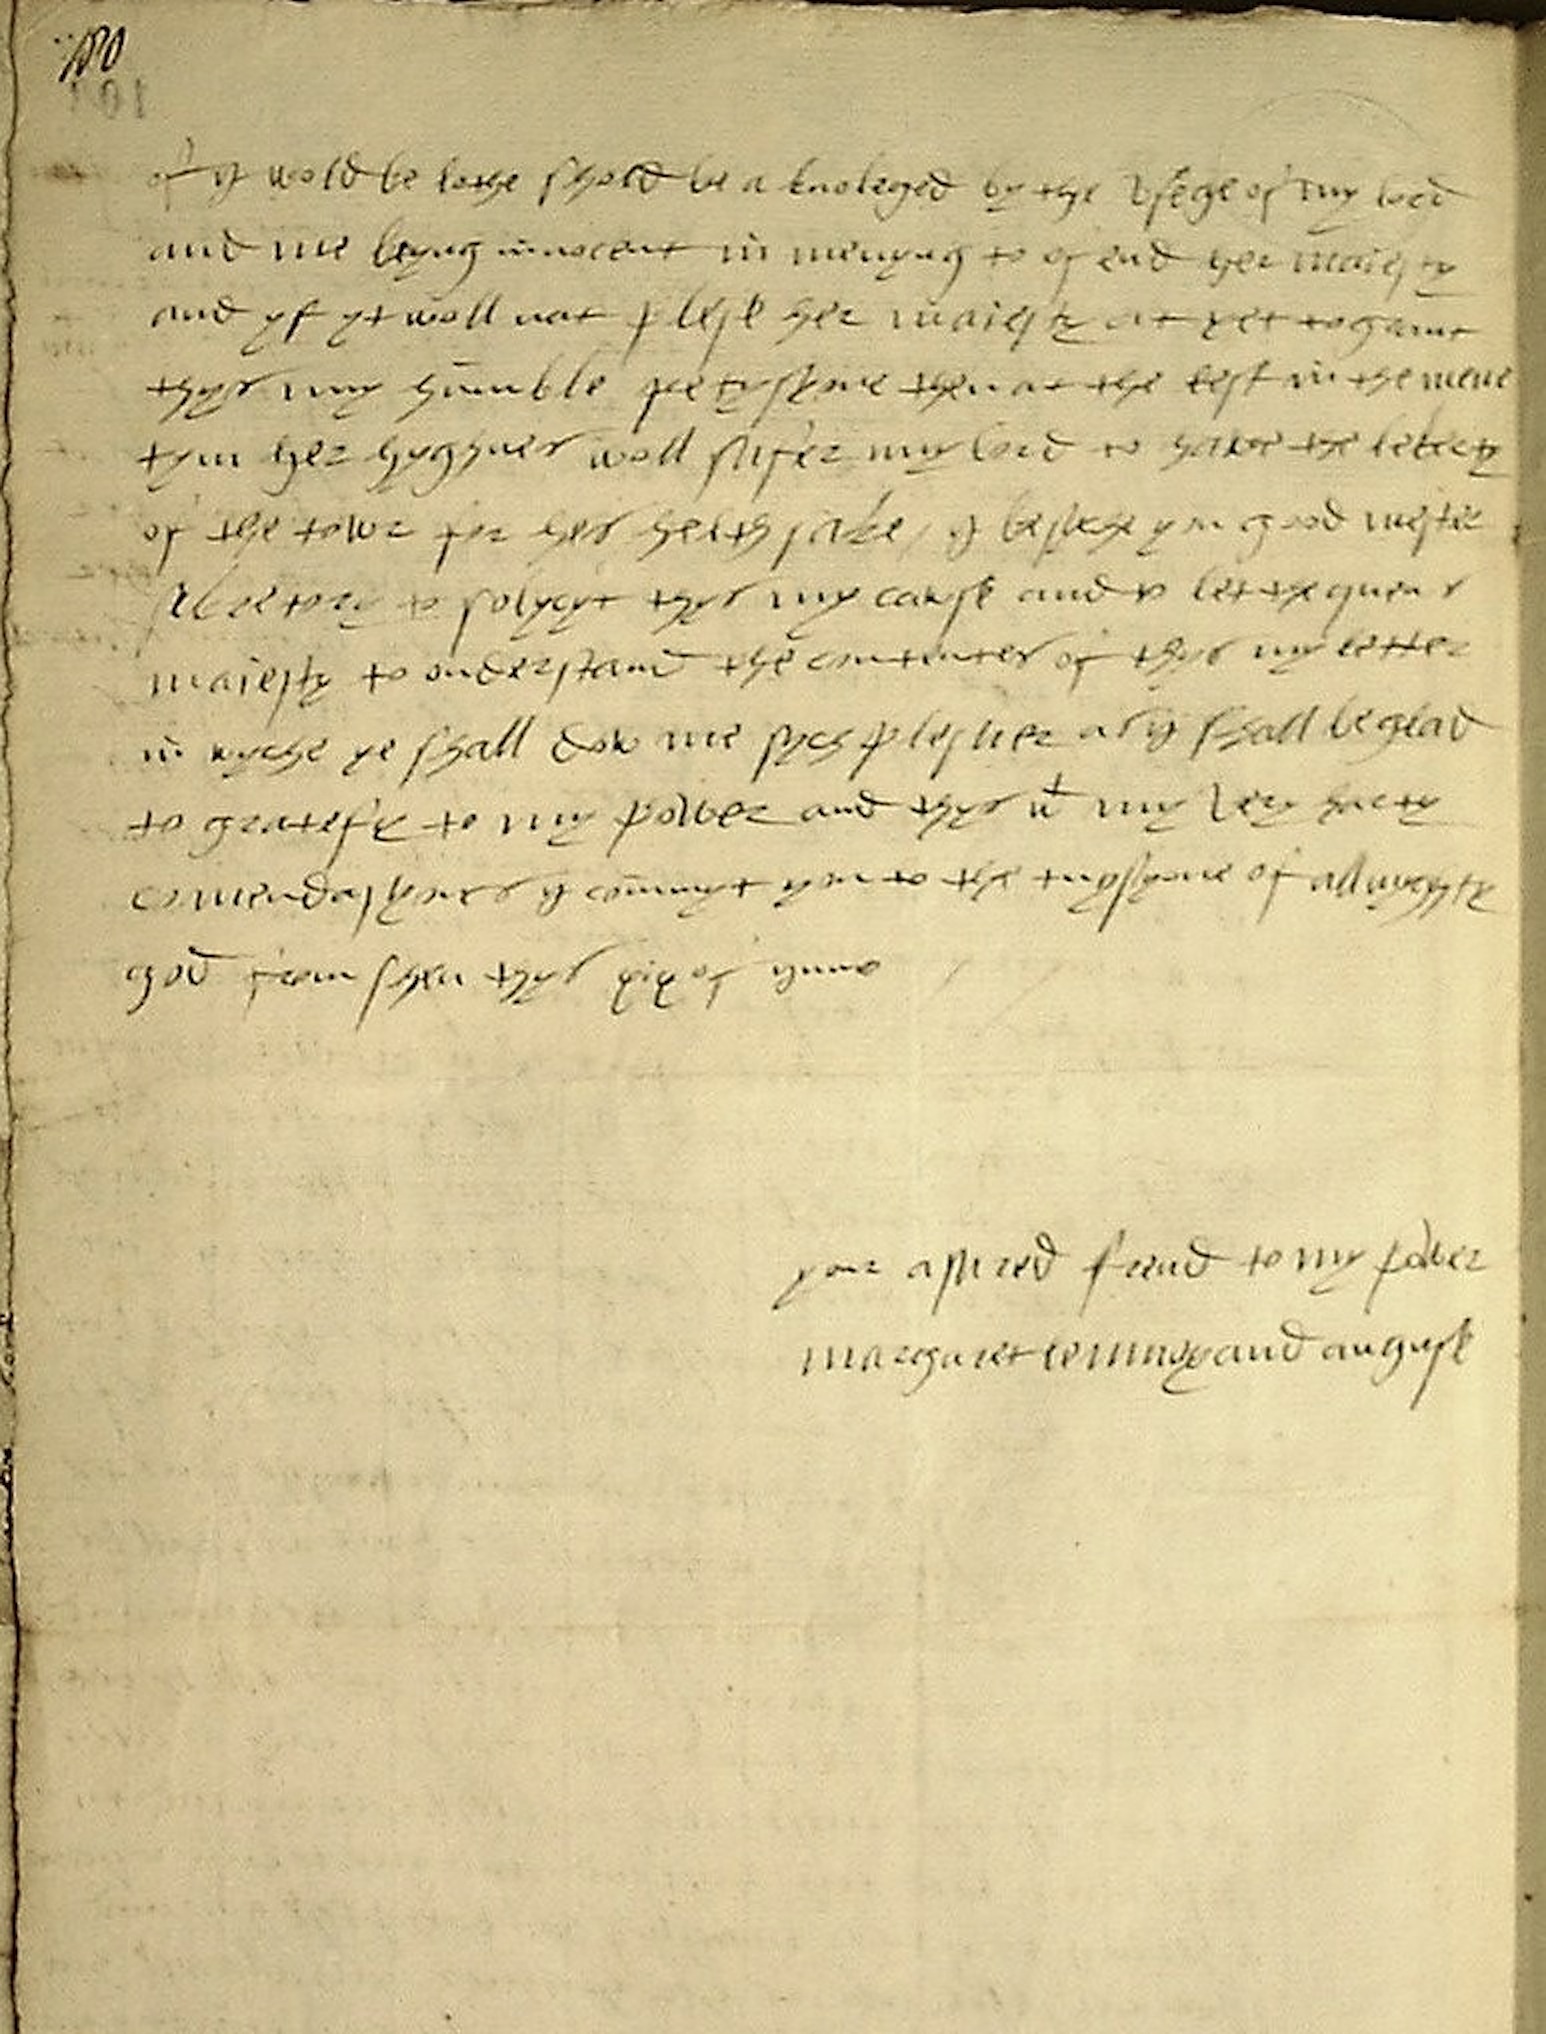 of y wold be lothe shold be a knoleged by the vsege of my lord
and me beyng innocent in menyng to ofend her maiesty
and yf yt woll nat plese her maiesty as yet to graunt
thys my humble petysyone then at the lest in the mene
tym her hyghnes woll sufer my lord to have the leberty
of the towr for hys helth sake / y beseche you good mester
secretory to solycyt thys my cause and to let the quens
maiesty to onderstand the contentes of thys my letter
in wyche ye shall dow me sych plesuer as y shall be glad
to gratefy to my power and thys wt my very harty
comendasyones y commyt you to the tuyssyone of allmyghty
god from shen thys xix of iune
your asured frend to my power
margaret lennox and anguse